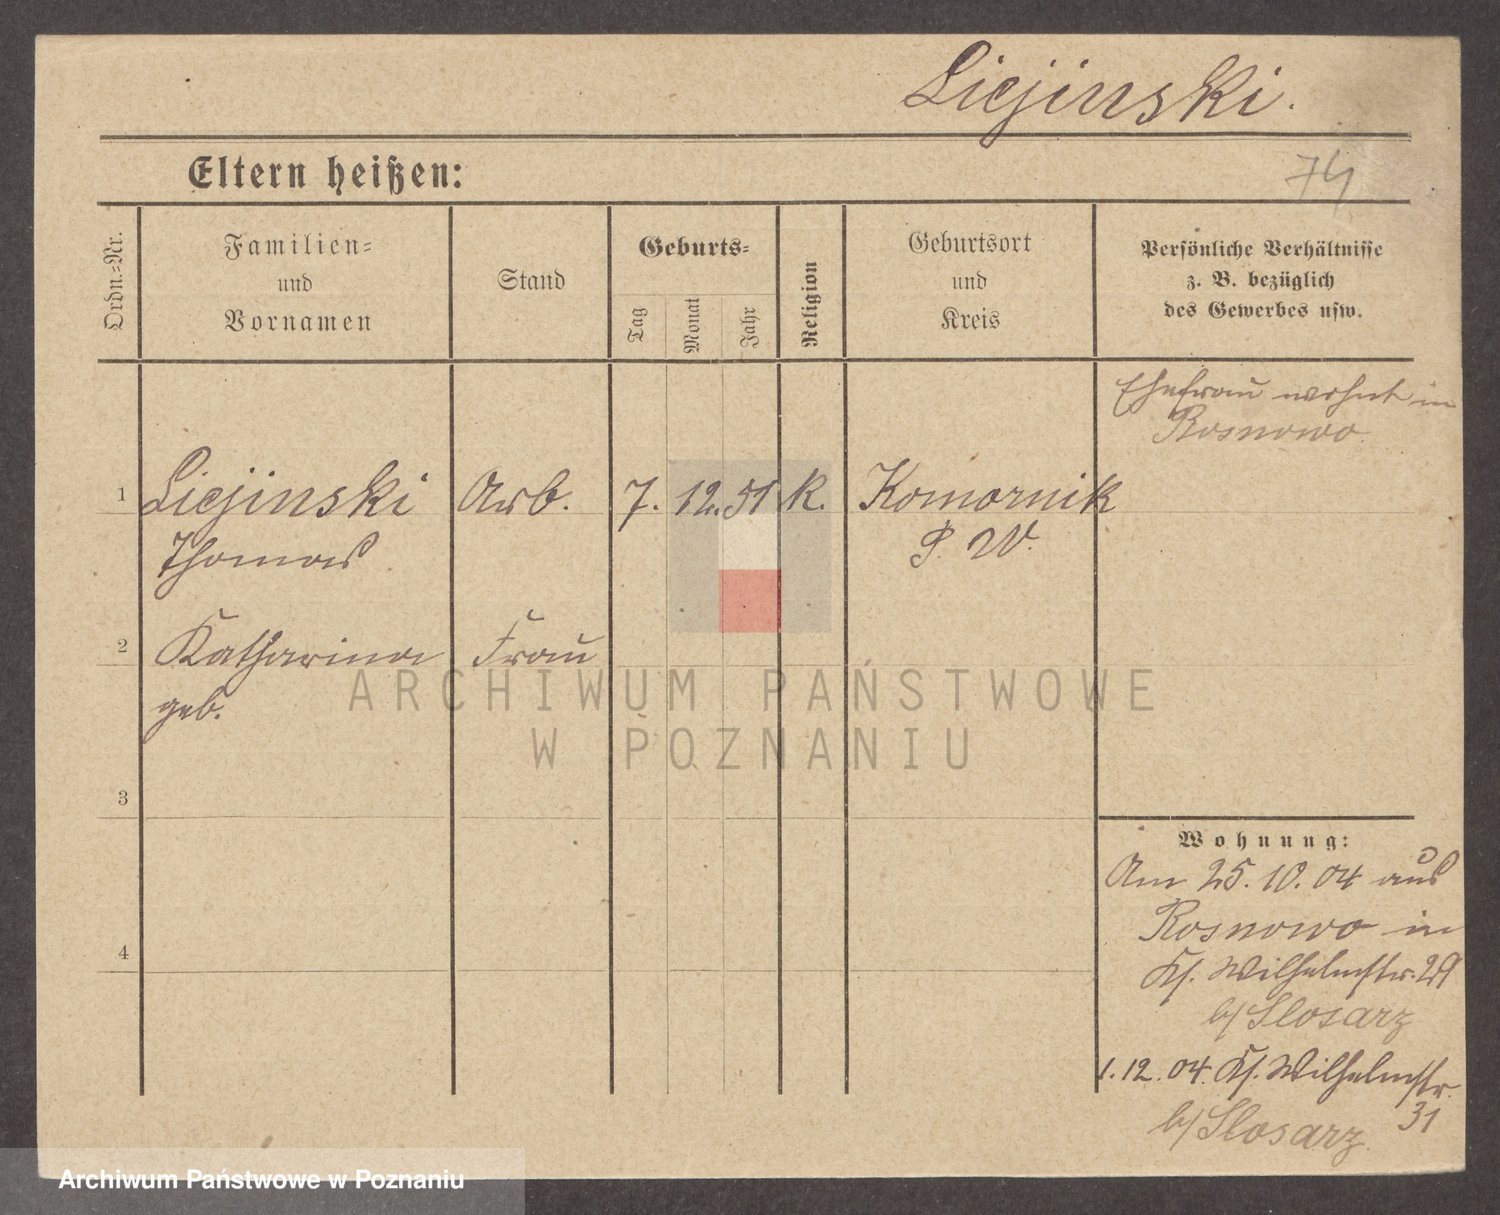 Liczinski.
74
Eltern heißen:
Ordn.=Nr.
Familien=
und
Vornamen
Stand
Geburts=
Tag
Monat
Jahr
Religion
Geburtsort
und
Kreis
Persönliche Verhältnisse
z. B. bezüglich
des Gewerbes usw.
Ehefrau wohnt in
Rosnowo.
1 Liczinski Arb. 7. 12. 51 K. Komornik
Thomas P. W.
2 Katharina Frau
geb.
3
4
Wohnung:
Am 25. 10. 04 aus
Rosnowo in
Kl. Wilhelmstr. 29
b/ Slosarz
1. 12. 04. Kl. Wilhelmstr.
31
b/ Slosarz.
ARCHIWUM PAŃSTWOWE
W POZNANIU
Archiwum Państwowe w Poznaniu